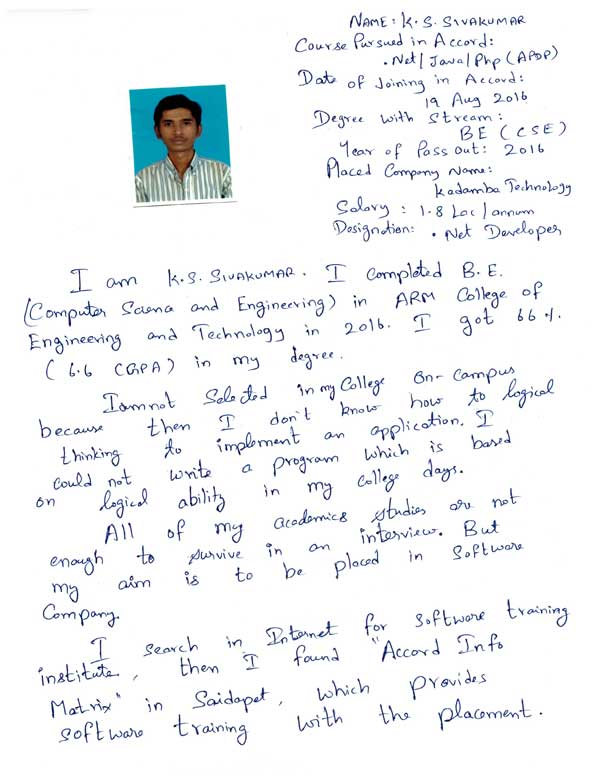 NAME: K. S. SIVAKUMAR
Course Pursued in Accord:
.Net/Java/Php (APDP)
Date of Joining in Accord:
19 Aug 2016
Degree with Stream:
BE (CSE)
Year of Pass Out: 2016
Placed Company Name:
Kadamba Technology
Salary : 1.8 Lac/annum
Designation: .Net Developer
I am K.S. SIVAKUMAR. I completed B.E.
(Computer Sciena and Engineering) in ARM College of
Engineering and Technology in 2016. I got 66%
(6.6 CGPA) in my degree.
Iamnot Selected in my College on-campus
because then I don't know how to logical
thinking to implement an application. I
could not write a program which is based
on logical ability in my college days.
All of my academics studies are not
enough to survive in an interview. But
my aim is to be placed in Software
Company.
I search in Internet for software training
institute, then I found "Accord Info
Matrix" in Saidapet, which provides
software training with the placement.